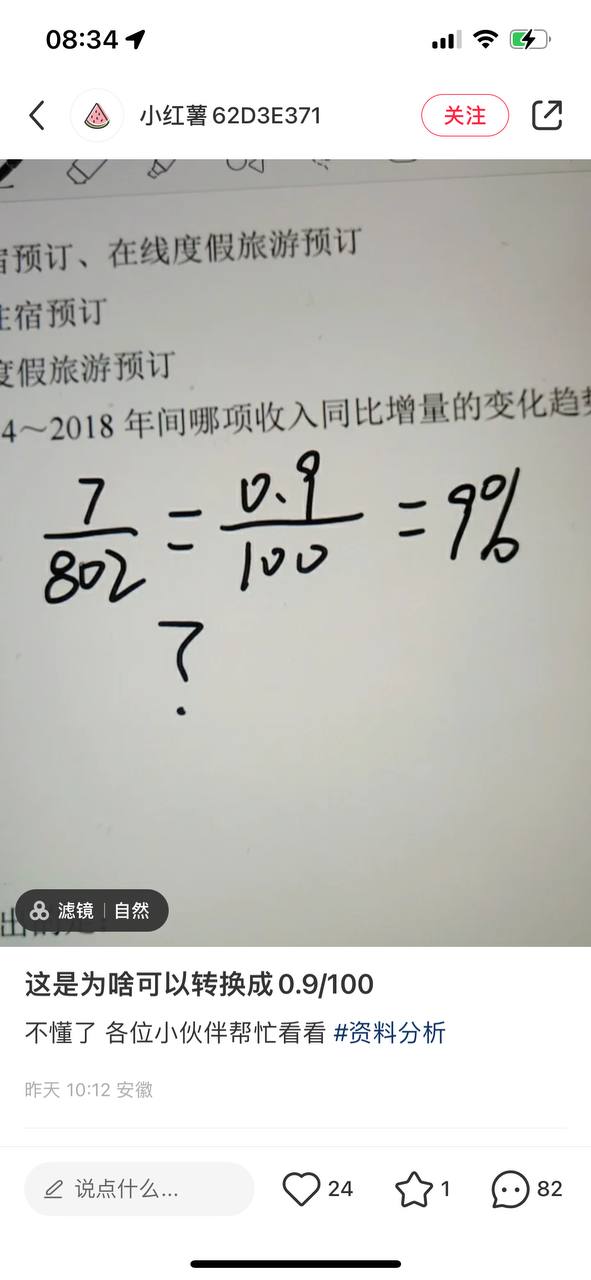 08:34
小红薯62D3E371
关注
预订、在线度假旅游预订
宿预订
度假旅游预订
4～2018 年间哪项收入同比增量的变化趋
7/802 = 0.9/100 = 9%
?
滤镜 | 自然
这是为啥可以转换成0.9/100
不懂了 各位小伙伴帮忙看看 #资料分析
昨天 10:12 安徽
说点什么...
24
1
82